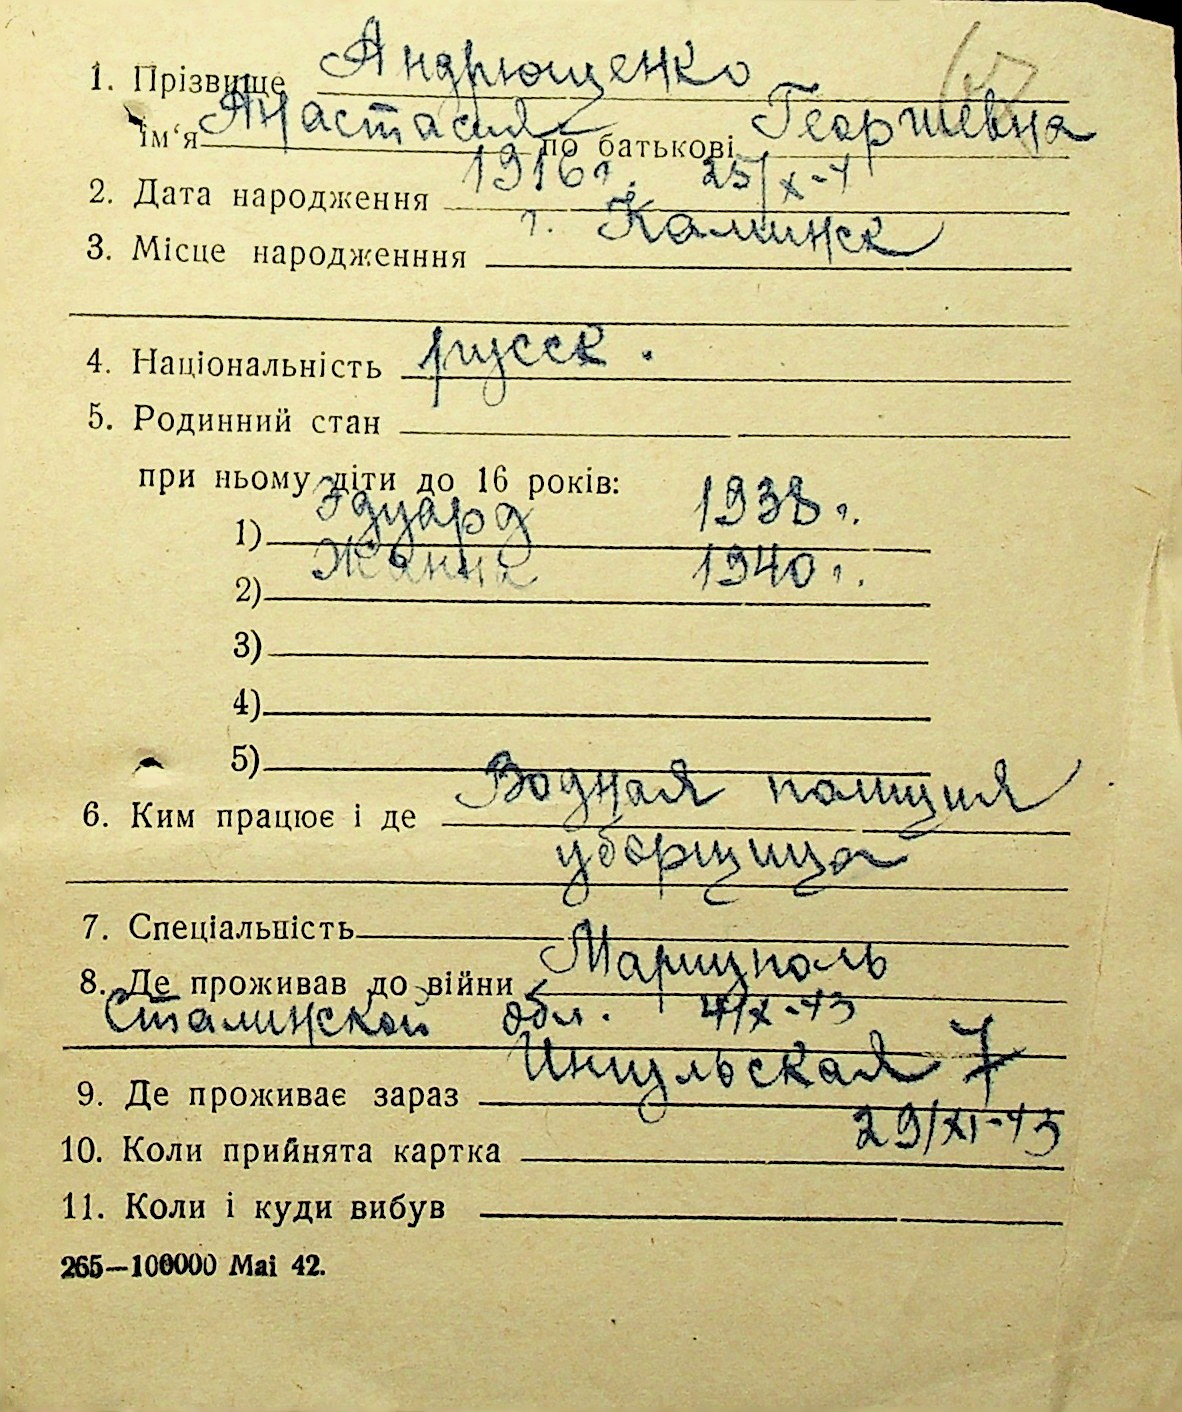 1. Прізвище Андрющенко
ім'я Анастасия по батькові Георгиевна
2. Дата народження 1916 г. 25/X-
3. Місце народженння г. Калинск
4. Національність русск.
5. Родинний стан
при ньому діти до 16 років:
1) Эдуард 1938 г.
2) Жанна 1940 г.
3)
4)
5)
6. Ким працює і де Водная полиция
уборщица
7. Спеціальність
8. Де проживав до війни Мариуполь
Сталинской обл. 4/X-43
9. Де проживає зараз Ингульская 7
10. Коли прийнята картка 29/XI-43
11. Коли і куди вибув
265—100000 Mai 42.